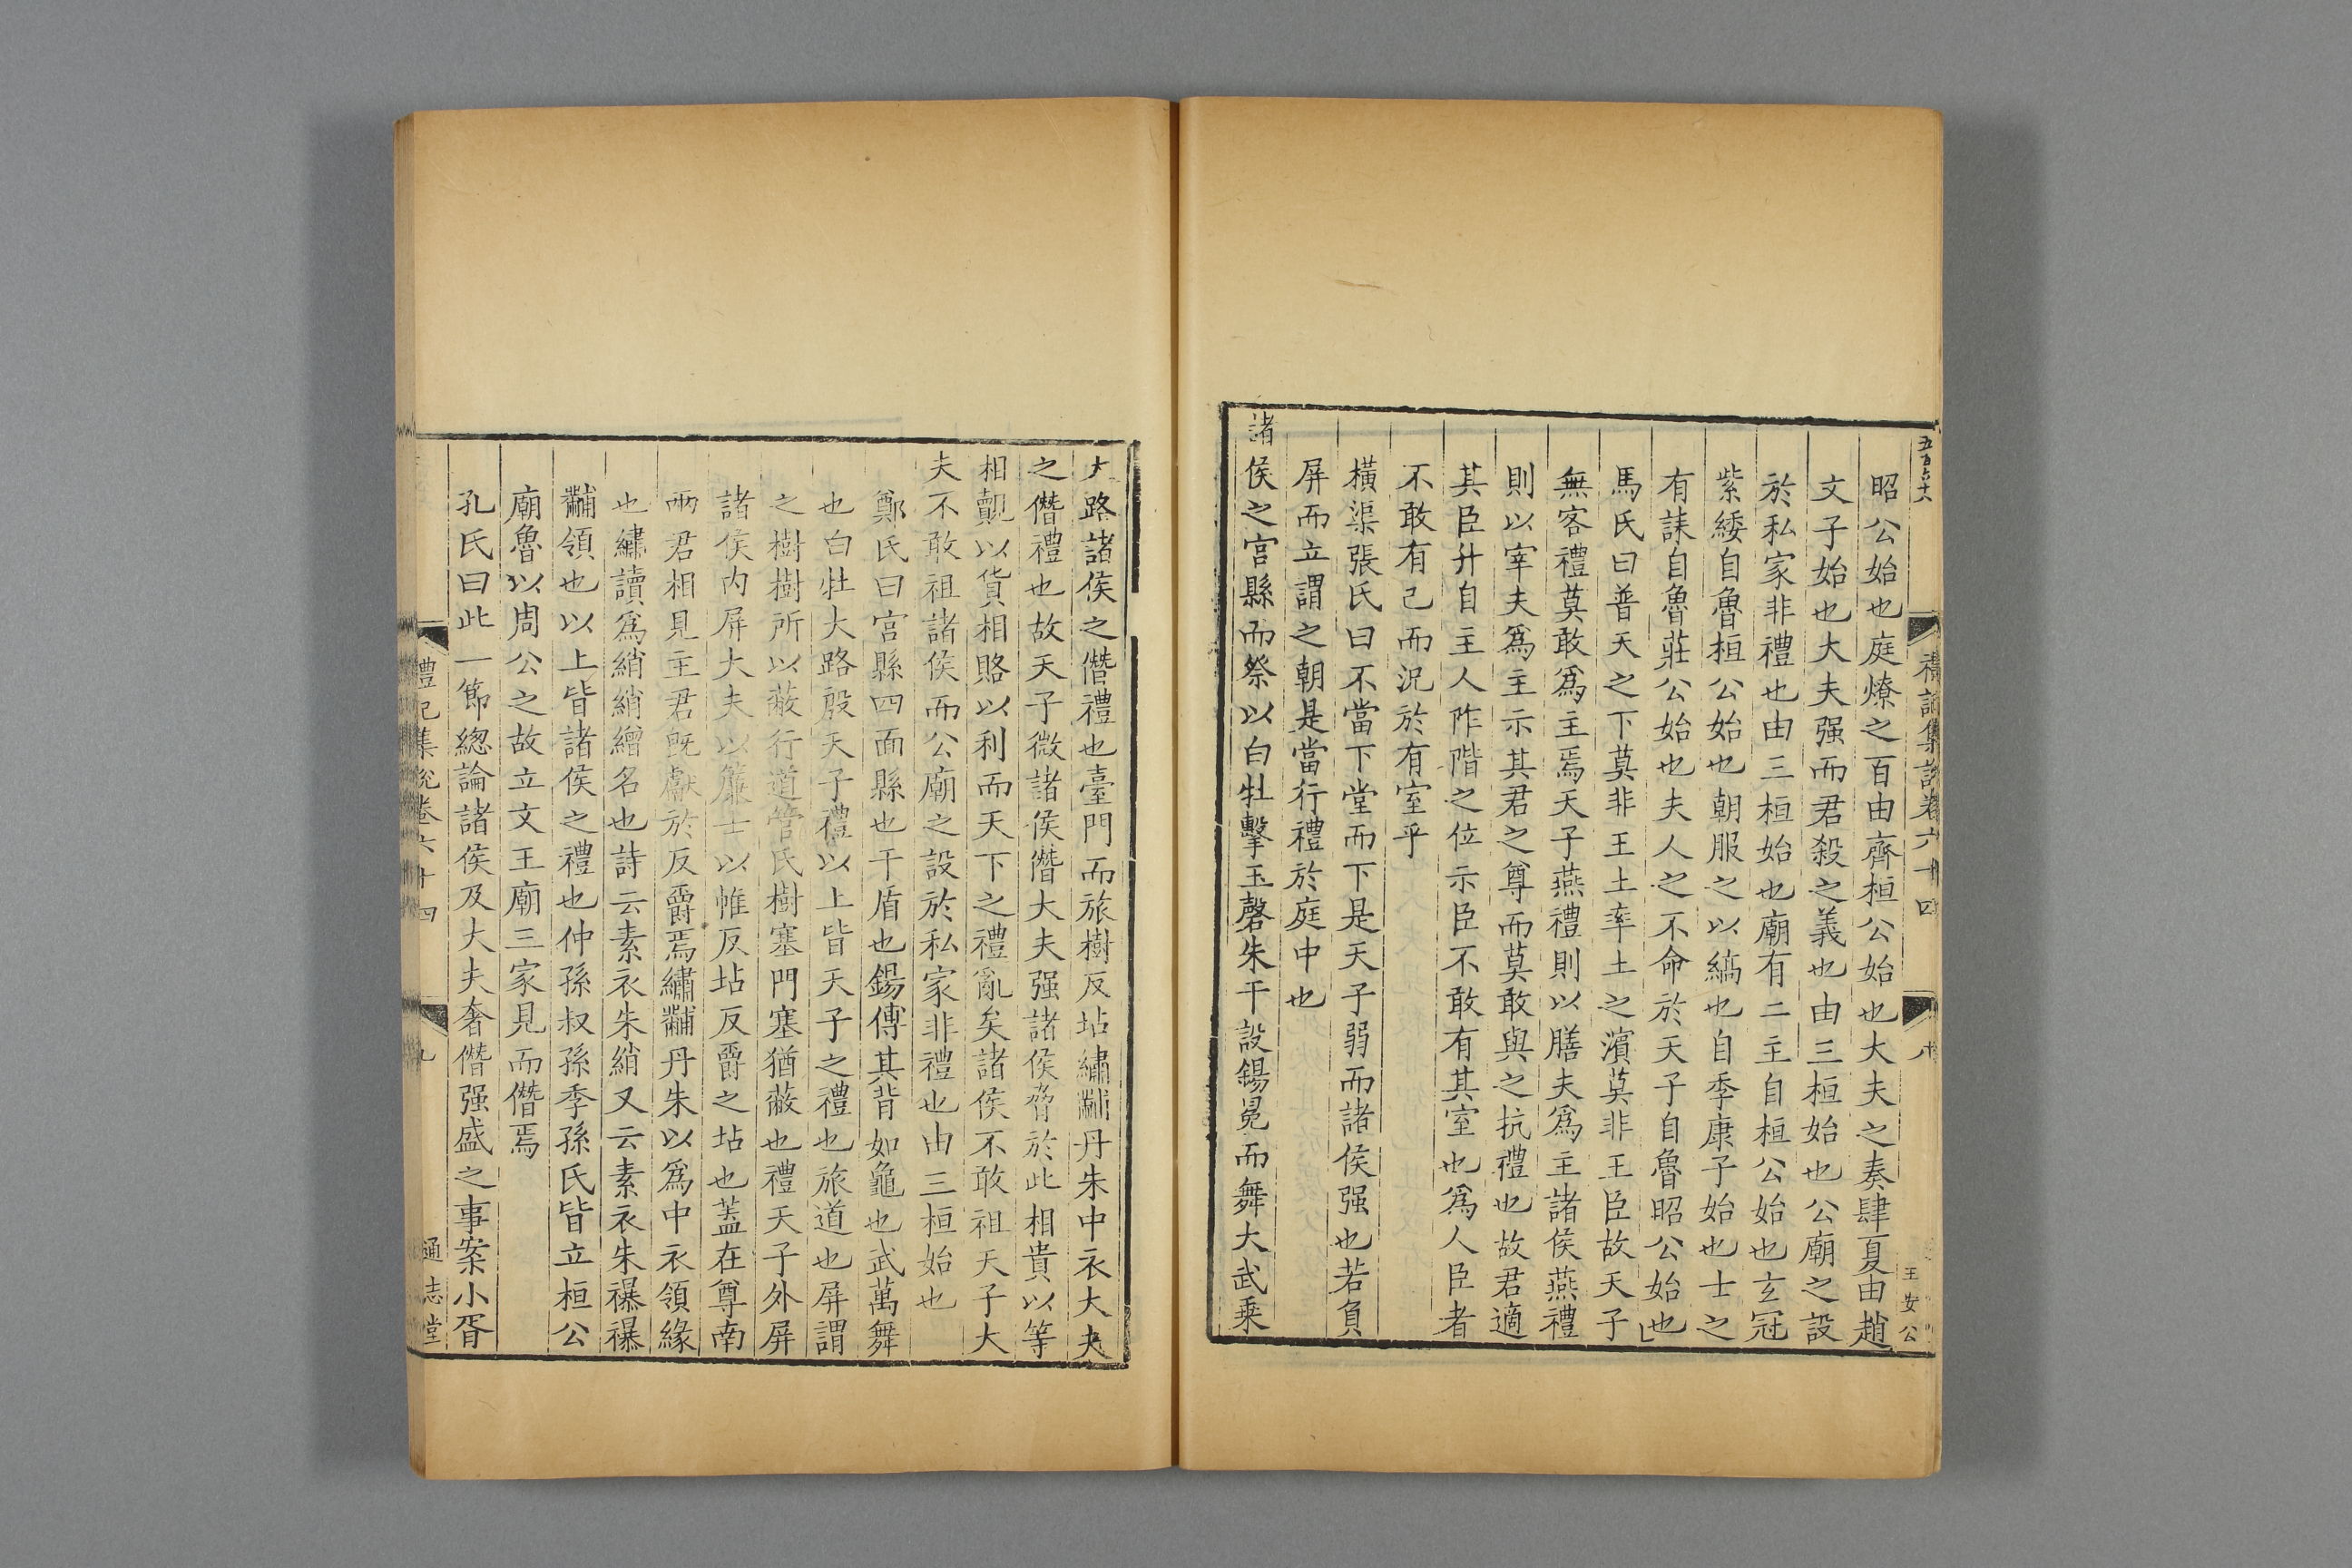 五百六十
禮記集說卷六十四
八
王安公
昭公始也庭燎之百由齊桓公始也大夫之奏肆夏由趙
文子始也大夫强而君殺之義也由三桓始也公廟之設
於私家非禮也由三桓始也廟有二主自桓公始也玄冠
紫緌自魯桓公始也朝服之以縞也自季康子始也士之
有誄自魯莊公始也夫人之不命於天子自魯昭公始也
馬氏曰普天之下莫非王土率土之濱莫非王臣故天子
無客禮莫敢爲主焉天子燕禮則以膳夫爲主諸侯燕禮
則以宰夫爲主示其君之尊而莫敢與之抗禮也故君適
其臣升自主人阼階之位示臣不敢有其室也爲人臣者
不敢有己而況於有室乎
橫渠張氏曰不當下堂而下是天子弱而諸侯强也若負
屏而立謂之朝是當行禮於庭中也
諸侯之宮縣而祭以白牡擊玉磬朱干設錫冕而舞大武乗
大路諸侯之僭禮也臺門而旅樹反坫繡黼丹朱中衣大夫
之僭禮也故天子微諸侯僭大夫强諸侯脅於此相貴以等
相覿以貨相賂以利而天下之禮亂矣諸侯不敢祖天子大
夫不敢祖諸侯而公廟之設於私家非禮也由三桓始也
鄭氏曰宮縣四面縣也干盾也錫傅其背如龜也武萬舞
也白牡大路殷天子禮以上皆天子之禮也旅道也屏謂
之樹樹所以蔽行道管氏樹塞門塞猶蔽也禮天子外屏
諸侯內屏大夫以簾士以帷反坫反爵之坫也蓋在尊南
兩君相見主君旣獻於反爵焉繡黼丹朱以爲中衣領緣
也繡讀爲綃綃繒名也詩云素衣朱綃又云素衣朱襮襮
黼領也以上皆諸侯之禮也仲孫叔孫季孫氏皆立桓公
廟魯以周公之故立文王廟三家見而僭焉
孔氏曰此一節總論諸侯及大夫奢僭强盛之事案小胥
禮記集說卷六十四
九
通志堂